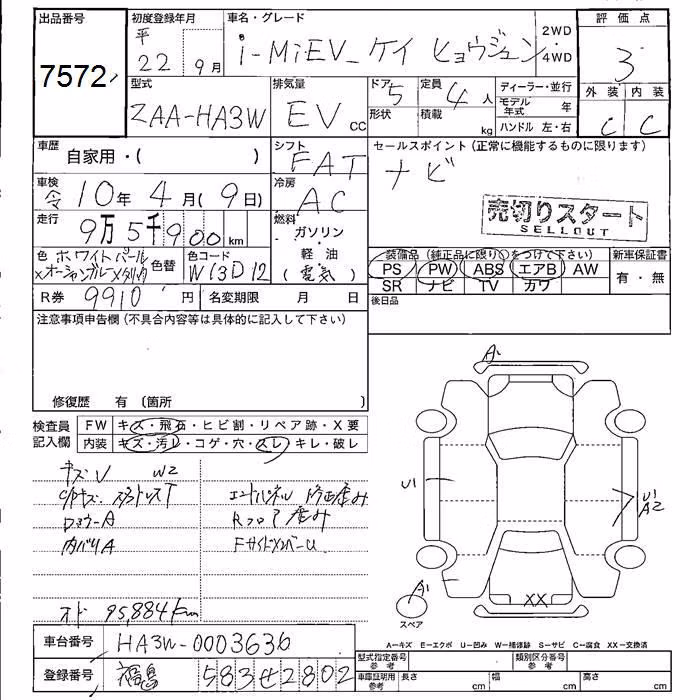 出品番号
7572
初度登録年月
平
22 9月
車名・グレード
i-MiEV_ケイ ヒョウジュン
2WD
4WD
評価点
3
外装 内装
C C
型式
ZAA-HA3W
排気量
EV cc
ドア
5
形状
定員
4人
積載
kg
ディーラー・並行
モデル年式 年
ハンドル 左・右
車歴
自家用・( )
シフト
FAT
セールスポイント (正常に機能するものに限ります)
ナビ
車検
令10年 4月(9日)
冷房
AC
売切りスタート
SELLOUT
走行
9万5千900km
燃料
ガソリン
・
軽油
(電気)
色 ホワイトパール
×オーシャンブルーメタリック
色替
色コード
W13D12
装備品 (純正品に限り○をつけて下さい)
新車保証書
PS PW ABS エアB AW
有・無
SR ナビ TV カワ
R券 9910円
名変期限 月 日
後日品
注意事項申告欄 (不具合内容等は具体的に記入して下さい)
修復歴 有 〔箇所
検査員
記入欄
FW キズ・飛石・ヒビ割・リペア跡・X要
内装 キズ・汚レ・コゲ・穴・スレ・キレ・破レ
キズV W2
エンドパネル 修正歪み
Rフロア 歪み
内バリA
FサイドメンバーU
オド 95,884km
A1
U1
U1
A2
A1
XX
スペア
A-キズ E-エクボ U-凹み W-補修跡 S-サビ C-腐食 XX-交換済
車台番号
HA3W-0003636
登録番号
福島 583せ2802
型式指定番号
参考
類別区分番号
参考
車庫証明用
参考
長さ cm
幅 cm
高さ cm